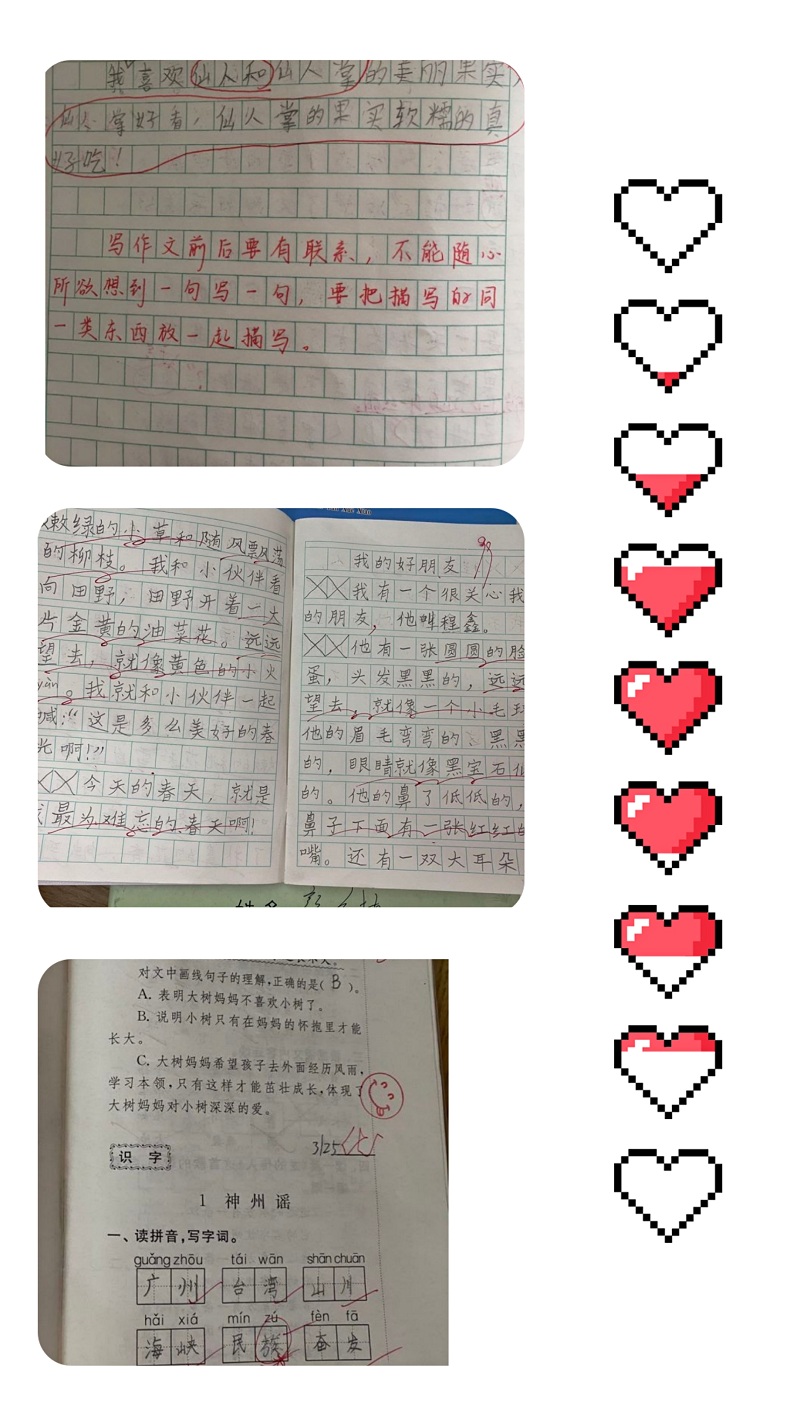 我喜欢仙人和仙人掌的美丽果实,
仙人掌好看,仙人掌的果实软糯的真
好吃!
写作文前后要有联系,不能随心
所欲想到一句写一句,要把描写的同
一类东西放一起描写。
嫩绿的小草和随风飘荡
的柳枝。我和小伙伴看
向田野,田野开着一大
片金黄的油菜花。远远
望去,就像黄色的小火
yàn。我就和小伙伴一起
喊:“这是多么美好的春
光啊!”
今天的春天,就是
最为难忘的春天啊!
我的好朋友
我有一个很关心我
的朋友,他叫程鑫。
他有一张圆圆的脸
蛋,头发黑黑的,远远
望去,就像一个小毛球
他的眉毛弯弯的、黑黑
的,眼睛就像黑宝石似
的。他的鼻子低低的,
鼻子下面有一张红红的
嘴。还有一双大耳朵
姓名
对文中画线句子的理解,正确的是(B)。
A. 表明大树妈妈不喜欢小树了。
B. 说明小树只有在妈妈的怀抱里才能
长大。
C. 大树妈妈希望孩子去外面经历风雨,
学习本领,只有这样才能茁壮成长,体现了
大树妈妈对小树深深的爱。
3/25
识 字
1 神州谣
一、读拼音,写字词。
guǎng zhōu tái wān shān chuān
广州 台湾 山川
hǎi xiá mín zú fèn fā
海峡 民族 奋发